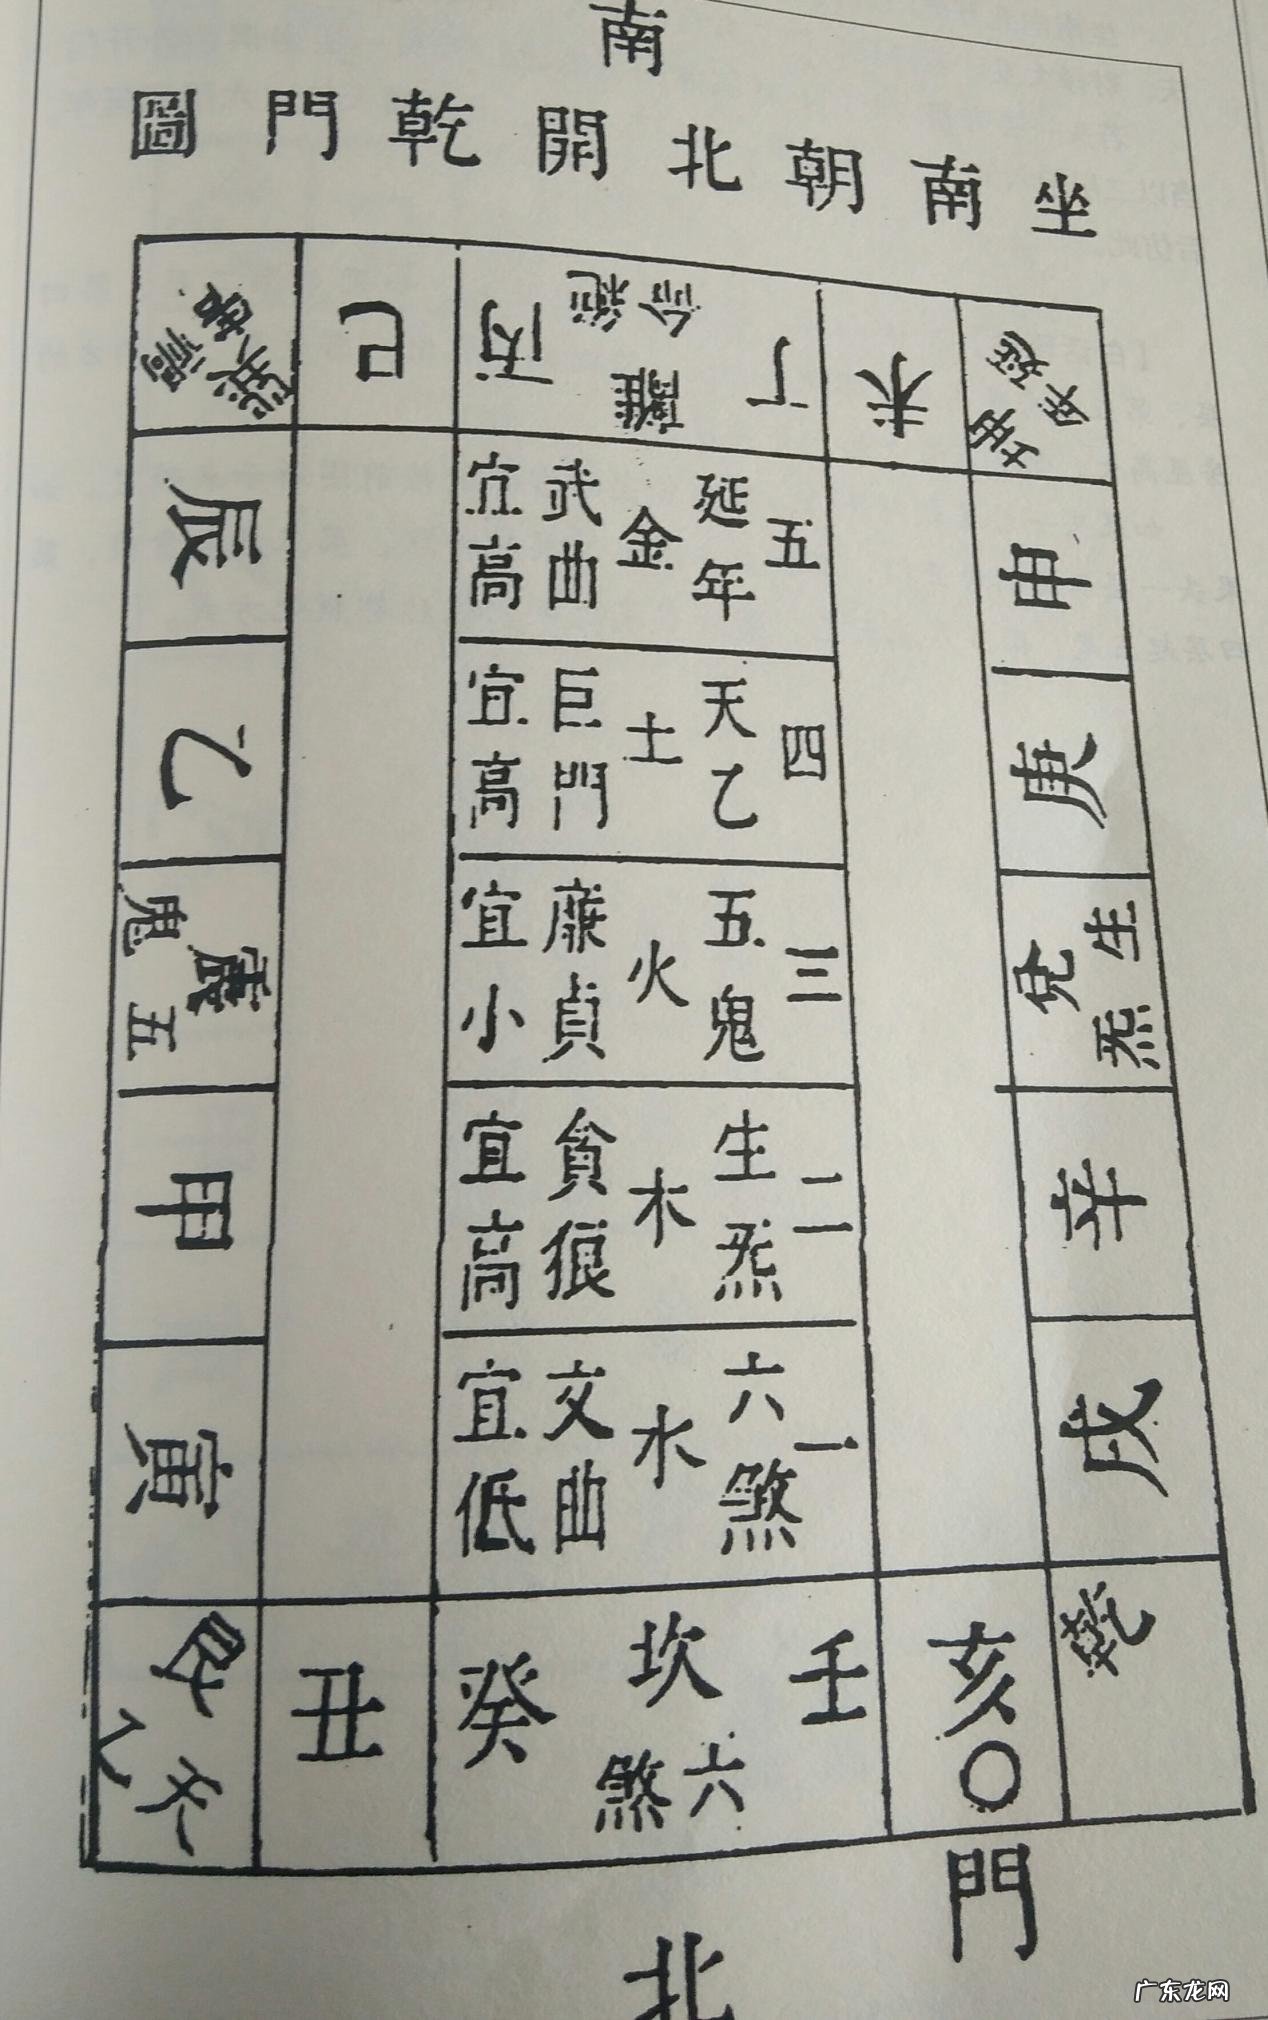 南
坐南朝北開乾門圖
坤延年
未
丁離丙
絕命
巳
巽禍害
申
庚
兌生炁
辛
戌
乾
五延年金武曲宜高
四天乙土巨門宜高
三五鬼火廉貞宜小
二生炁木貪狼宜高
一六煞水文曲宜低
辰
乙
震五鬼
甲
寅
艮天乙
丑
癸坎壬
六煞
亥○
門
北
广东龙网